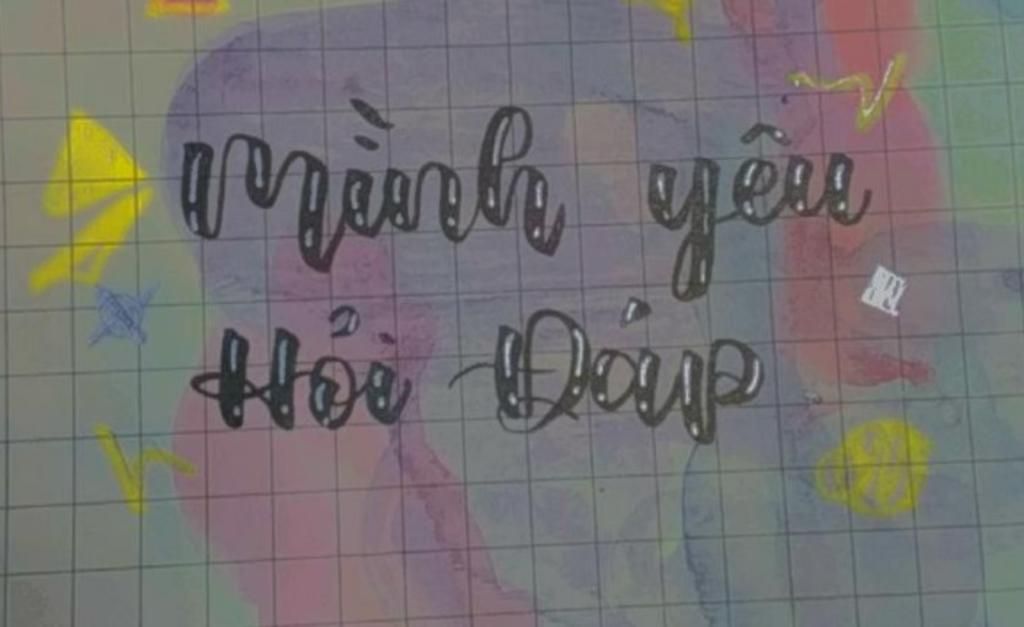 mình yêu
Hỏi Đáp